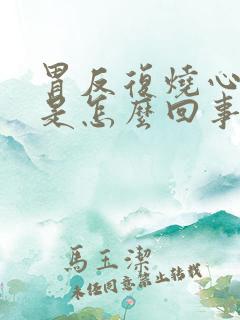 胃反復燒心
是怎麼回事
馬玉潔
未經同意禁止轉載